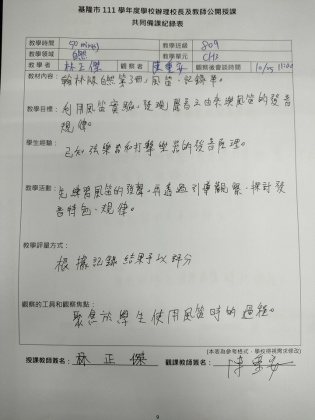 基隆市 111 學年度學校辦理校長及教師公開授課
共同備課紀錄表
教學時間 50 mins 教學班級 809
教學領域 自然 教學單元 CH3
教學者 林正傑 觀察者 觀察後會談時間
教材內容：翰林版自然第3冊,風笛、記錄單。
教學目標：利用風笛實驗,發現聲音之由來與風笛的發音
規律。
學生經驗：已知弦樂器和打擊樂器的發音原理。
教學活動：先練習風笛的發聲,再透過引導觀察、探討發
音特色、規律。
教學評量方式：
根據記錄結果予以評分
觀察的工具和觀察焦點：
聚焦於學生使用風笛時的過程。
(本表為參考格式，學校得視需求修改)
授課教師簽名：林正傑 觀課教師簽名：
9